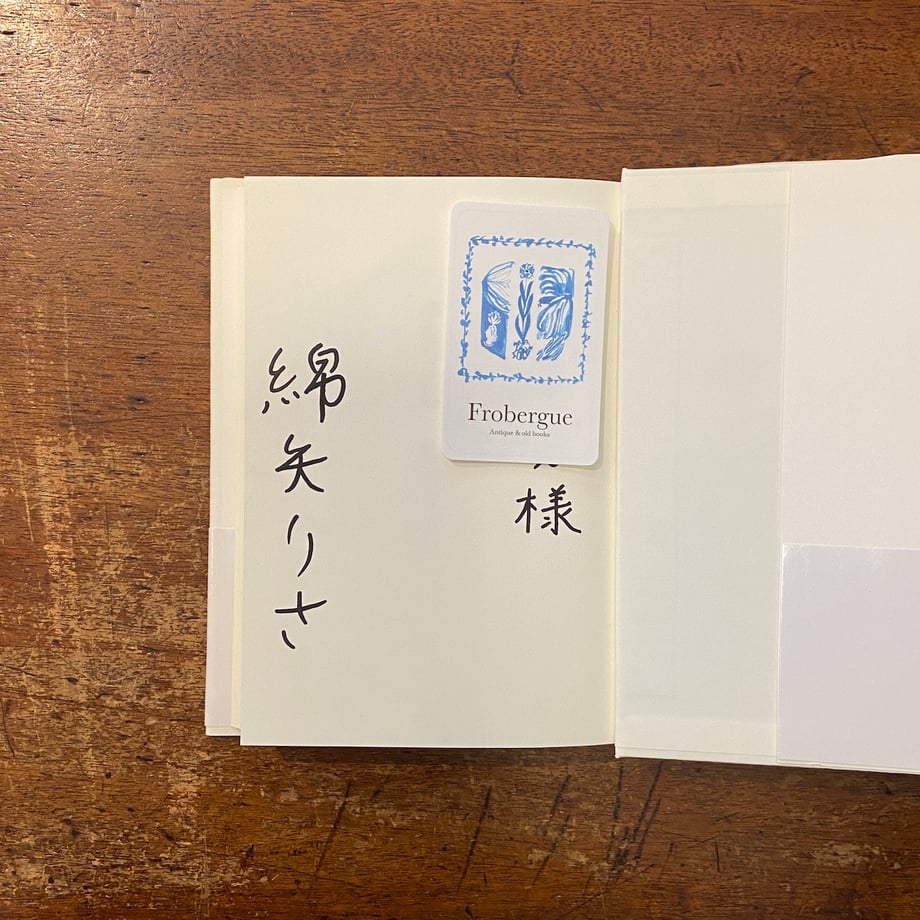 様
綿矢りさ
Frobergue
Antique & old books